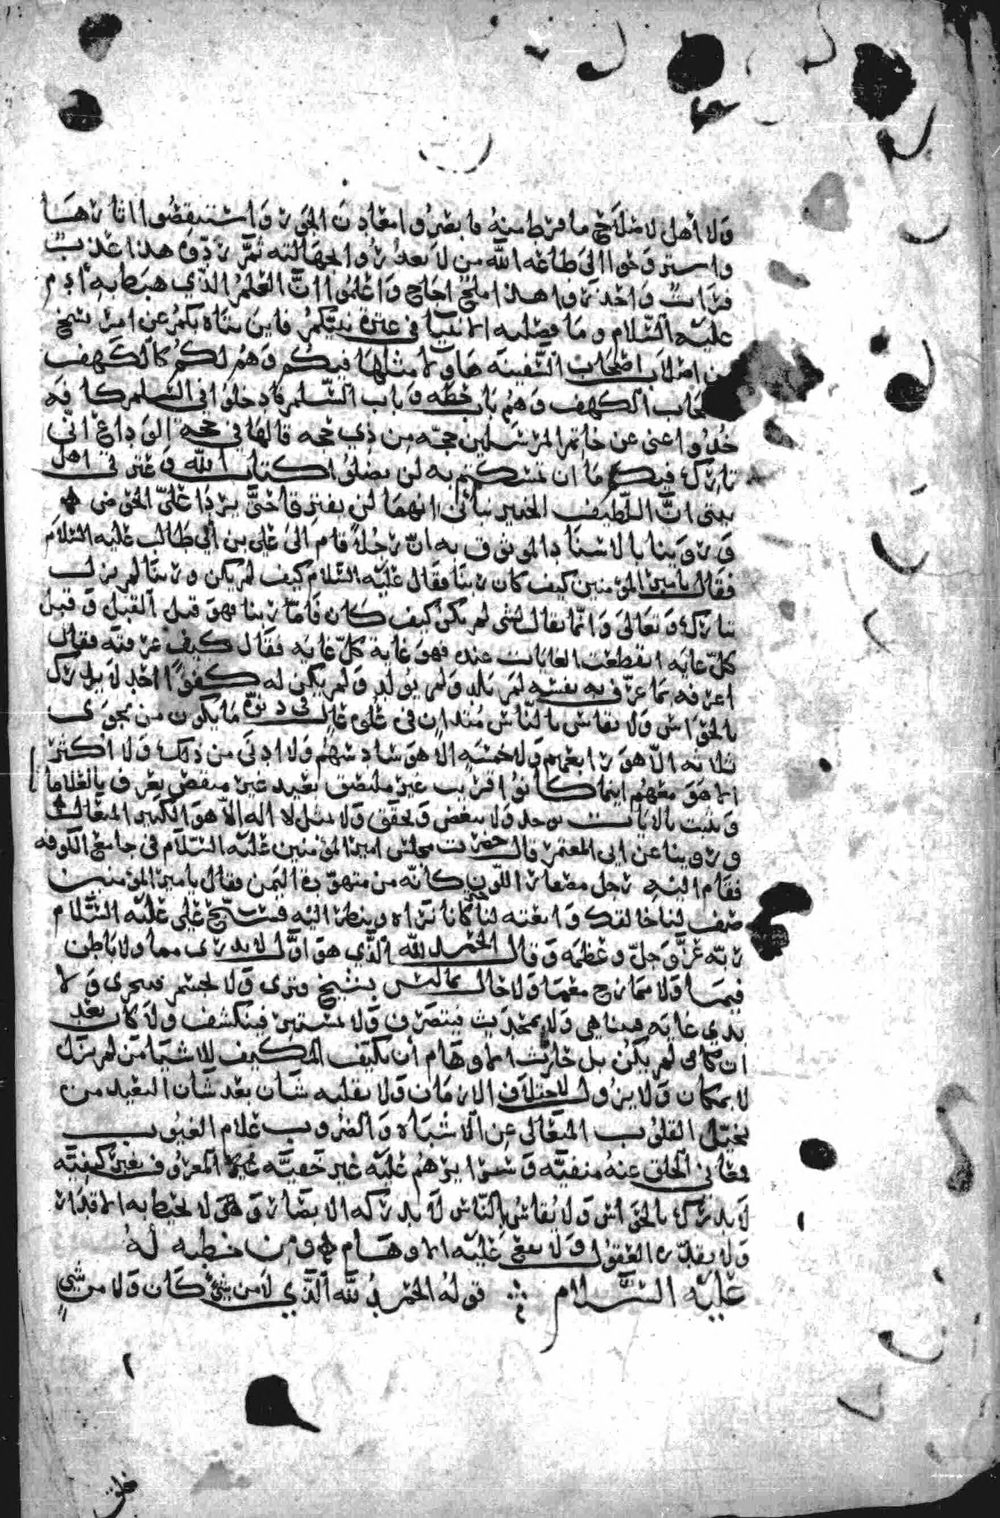 ولا أهل لاصلاح ما فرط منه فابصروا معادن الجور واستبغضوا اثارها
واستروحوا الى طاعة الله من لا يعذر والجهالته ثم ردوه هذا عذب
فرات واحذروا هذا ملح اجاج واعلموا ان العلم الذي هبط به ادم
عليه السلام وما فضلته الانبيا في عترة نبيكم فاين يتاه بكم عن امر نسخ
من اصلاب اصحاب السفينة هاولا مثلها فيكم وهم لكم كالكهف
لاصحاب الكهف وهم باب حطة وباب السلم فادخلوا في السلم كافة
خذوا عني عن خاتم المرسلين حجة من ذي حجه قالها في حجة الوداع اني
تارك فيكم ما ان تمسكتم به لن تضلوا كتاب الله وعترتي اهل
بيتي ان اللطيف الخبير نباني انهما لن يفترقا حتى يردا علي الحوض
وروينا بالاسناد الموثوق به ان رجلا قام الى علي بن ابي طالب عليه السلام
فقال يامير المومنين كيف كان ربنا فقال عليه السلام كيف لم يكن وربنا لم يزل
تبارك وتعالى وانما يقال لشي لم يكن كيف كان فاما ربنا فهو قبل القبل وقبل
كل غايه انقطعت الغايات عنده فهو غاية كل غايه فقال كيف عرفته فقال
اعرفه بما عرف به نفسه لم يلد ولم يولد ولم يكن له كفوا احد لا يدرك
بالحواس ولا يقاس بالناس متدان في علوه عال في دنوه ما يكون من نجوى
ثلاثه الا هو رابعهم ولا خمسه الا هو سادسهم ولا ادنى من ذلك ولا اكثر
الا هو معهم اينما كانوا قريب غير ملتصق بعيد غير متقص يعرف بالعلامات
ويثبت بالايات يوحد ولا يبعض ويحقق ولا يمثل لا اله الا هو الكبير المتعال
وروينا عن ابي المعتمر قال حضرت مجلس امير المومنين عليه السلام في جامع الكوفه
فقام اليه رجل مصفار اللون كانه من متهودة اليمن فقال يامير المومنين
صف لنا خالقك وانعته لنا كانا نراه وينظر اليه فسبح علي عليه السلام
ربه عز وجل وعظمه وقال الحمد لله الذي هو اول لا بدي مما ولا باطن
فيما ولا ممازج معما ولا حال بما ليس بشبح فيرى ولا بجسم فيتجزى ولا
بذي غايه فيتناهى ولا بمحدث فيتصرف ولا بمستتر فينكشف ولا كان بعد
ان لم يكن بل حارت الاوهام ان تكيف المكيف للاشيا من لم يزل
لا بمكان ولا يزول لاختلاف الازمان ولا يقلبه شان بعد شان البعيد من
تخيل القلوب المتعالي عن الاشباه والضروب علام الغيوب
فمعاني الخلق عنه منفيه وسرايرهم عليه غير خفيه المعروف بغير كيفيه
لا يدرك بالحواس ولا يقاس بالناس لا تدركه الابصار ولا تحيط به الاقدار
ولا تقدره العقول ولا تقع عليه الاوهام ومن خطبه له
عليه السلام قوله الحمد لله الذي لا من شيء كان ولا من شيء
خلق